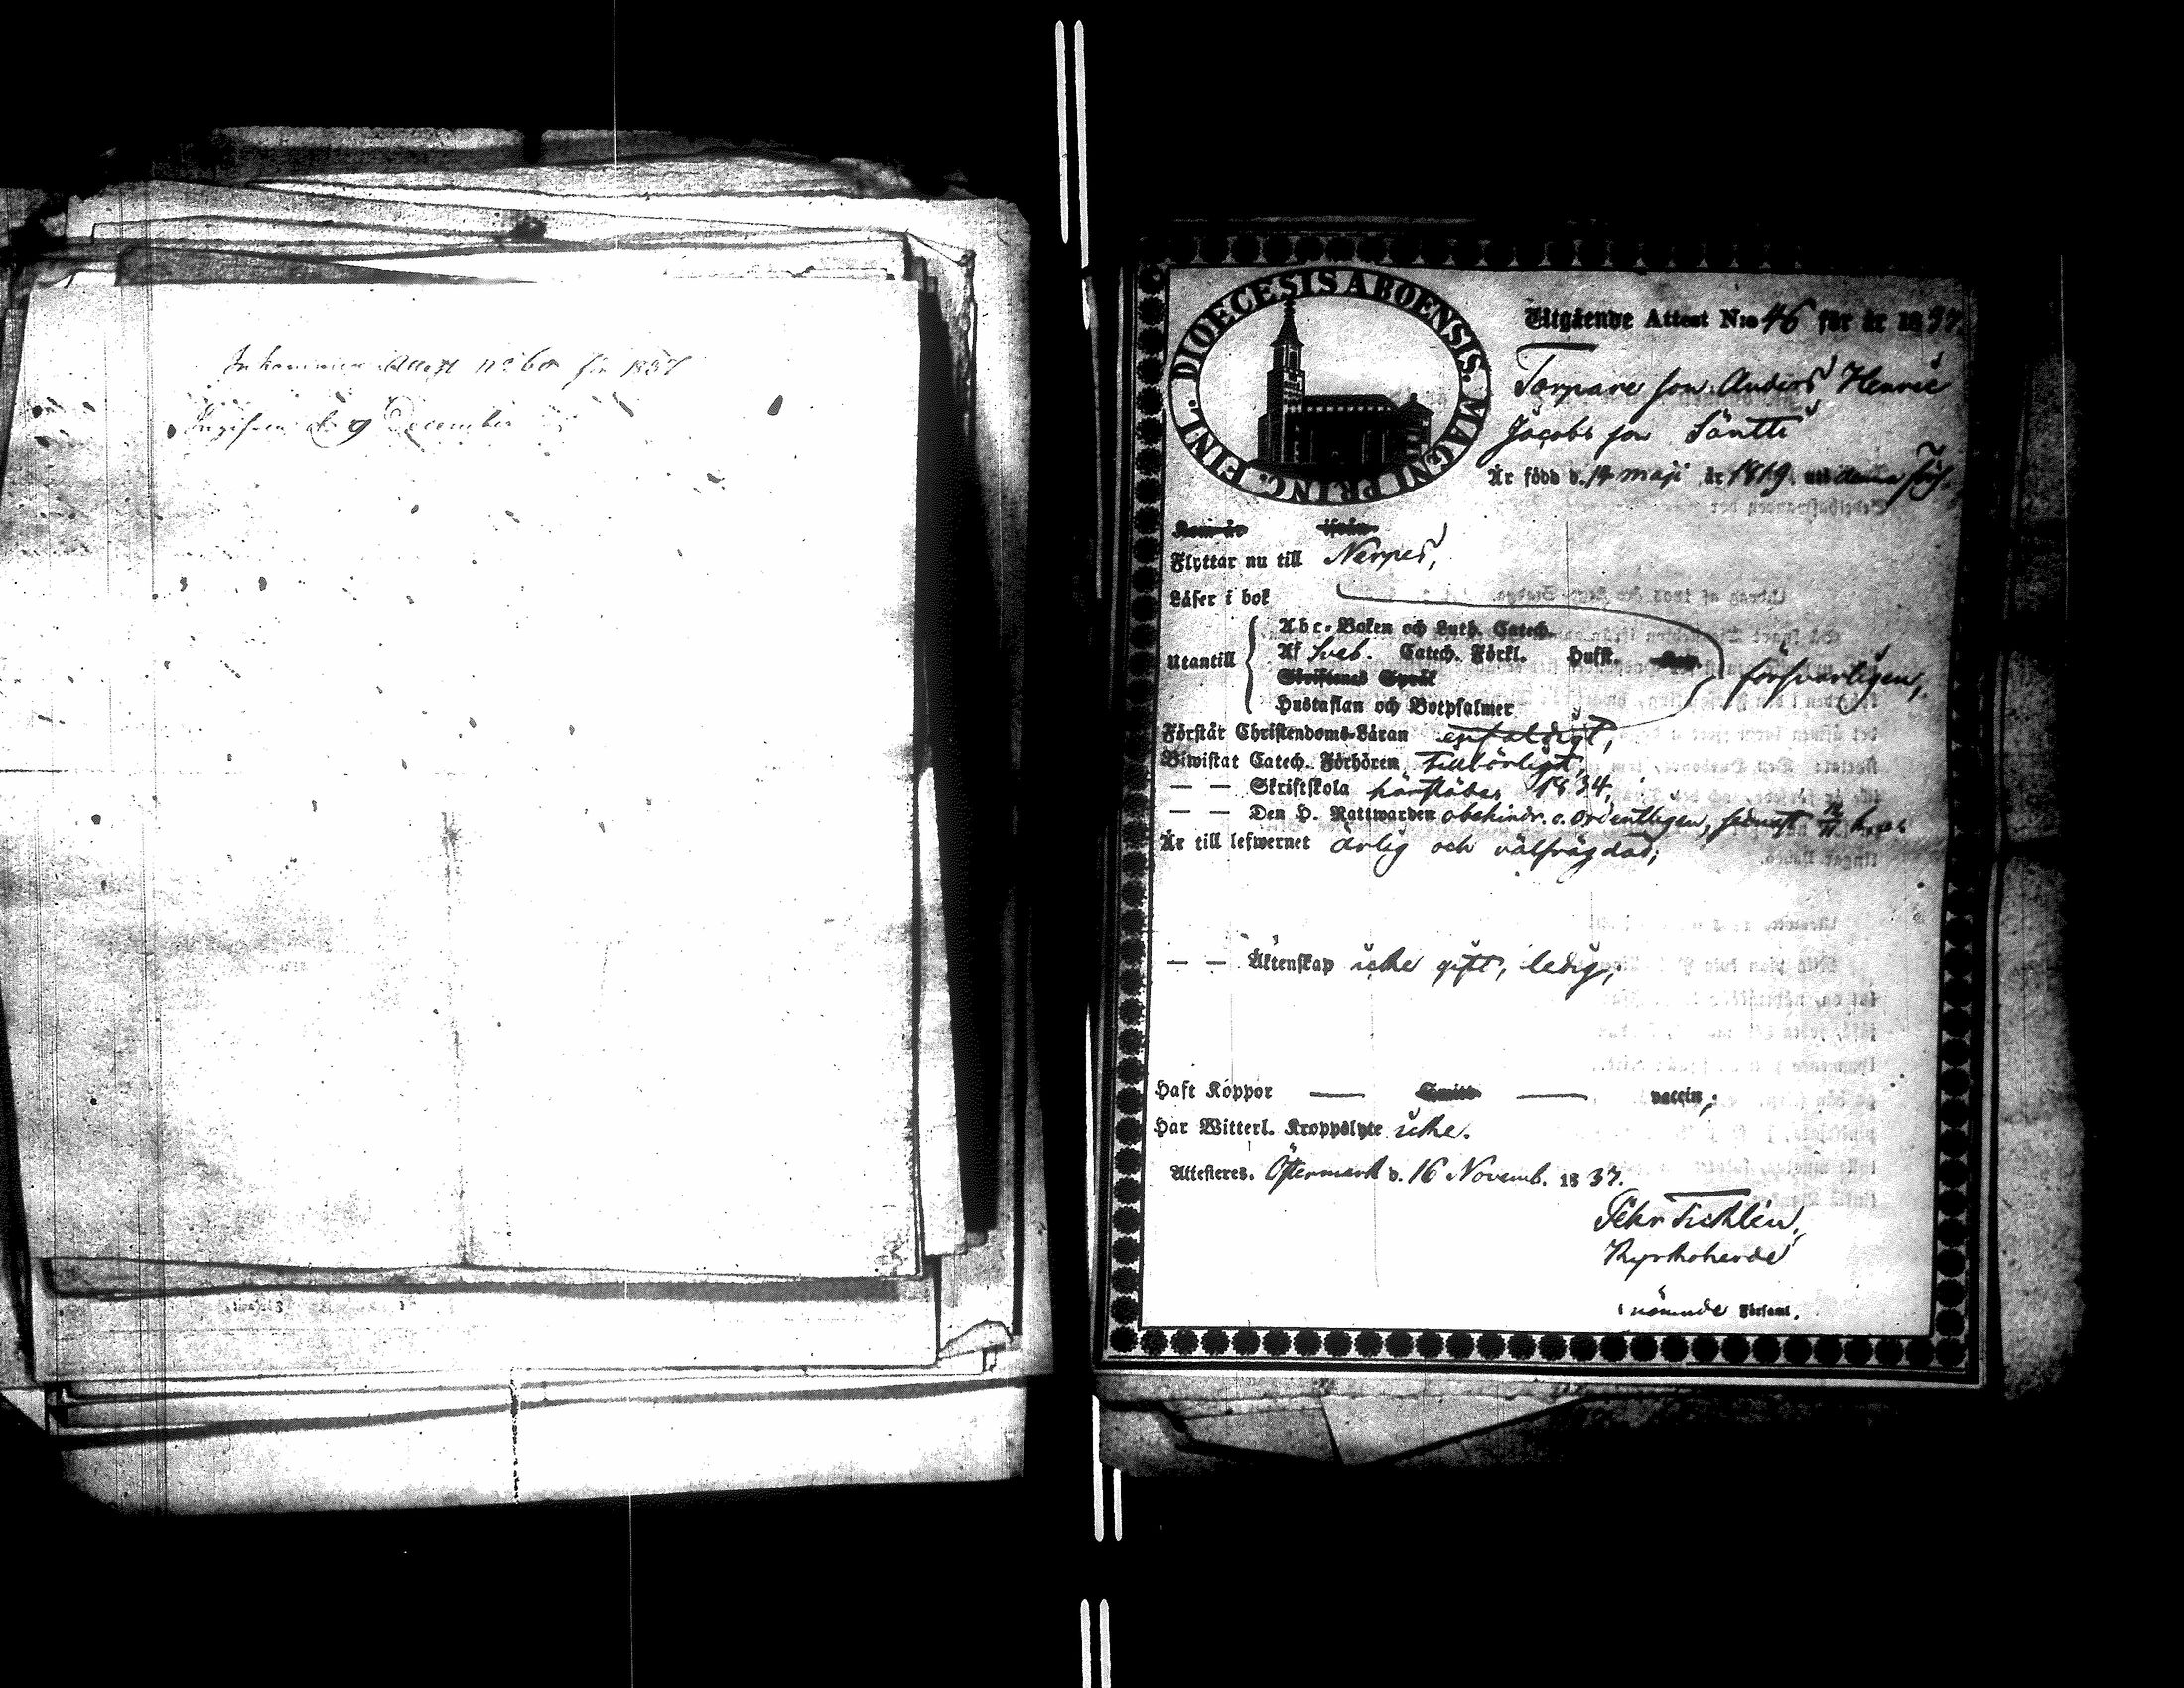 Inkommen Attest No 60 för 1837
Ingifven d. 19 December
DIOECESIS ABOENSIS. MAGNI PRINC. FINL.
Utgående Attest N:o 46 för år 1837.
Torpare son Anders Henric
Jacobs son Säntti
Är född d. 14 maji år 1819 uti denna förs.
Kom år ifrån
Flyttar nu till Nerpes,
Läser i bok
Abc-Boken och Luth. Catech.
Utantill Af Sveb. Catech. Förkl. Husst.
Skriftenes Språk
försvarligen,
Hustaflan och Botpsalmer
Förstår Christendoms-Läran enfaldigt,
Biwistat Catech. Förhören tillbörligt,
— — Skriftskola härstädes 1834,
— — Den H. Nattwarden obehindr. o. ordentligen, senast
Är till lefwernet ärlig och välfrägdad;
— — Äktenskap icke gift, ledig,
Haft Koppor — Smitt — vaccin;
Har Witterl. Kroppslyte icke.
Attesteres. Östermark d. 16 Novemb. 1837.
Kyrkoherde
i nämnde Församl.